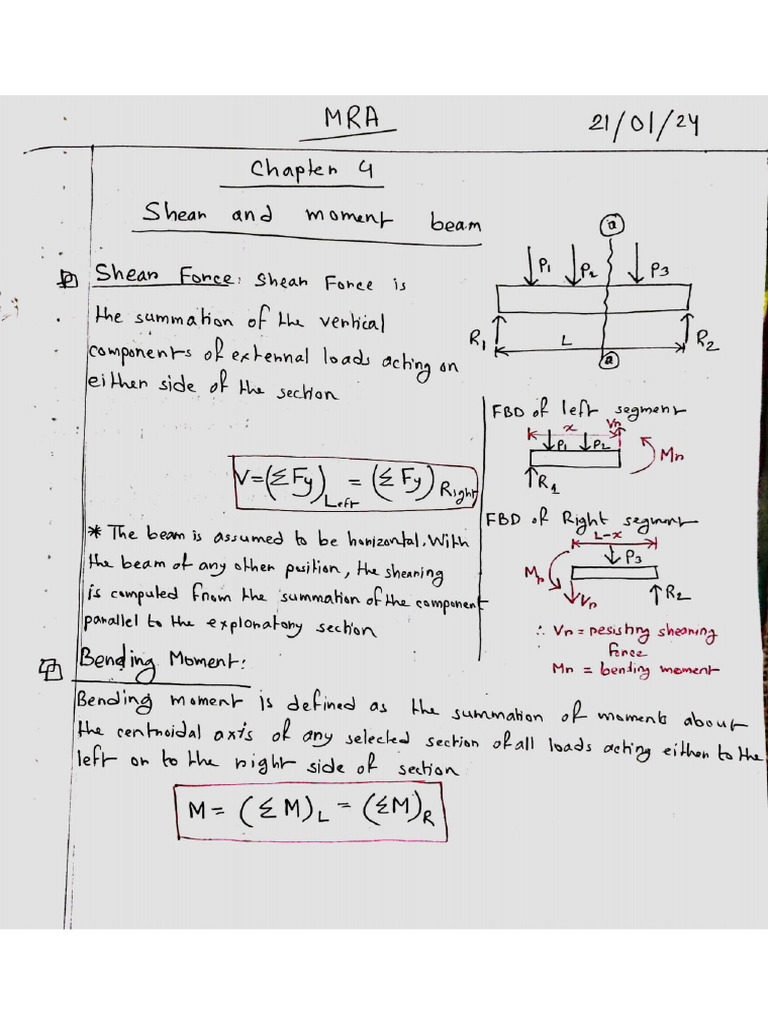 MRA
21/01/24
Chapter 4
Shear and moment beam
Shear Force: Shear Force is
the summation of the vertical
components of external loads acting on
either side of the section
V=(ΣFy)Left = (ΣFy)Right
* The beam is assumed to be horizontal. With
the beam of any other position, the shearing
is computed from the summation of the component
parallel to the exploratory section
a
P1 P2 P3
R1 L R2
a
FBD of left segment
x Vr
P1 P2 Mr
R1
FBD of Right segment
L-x
P3
Mr
Vr R2
∴ Vr = resisting shearing
force
Mr = bending moment
Bending Moment:
Bending moment is defined as the summation of moments about
the centroidal axis of any selected section of all loads acting either to the
left or to the right side of section
M = (ΣM)L = (ΣM)R